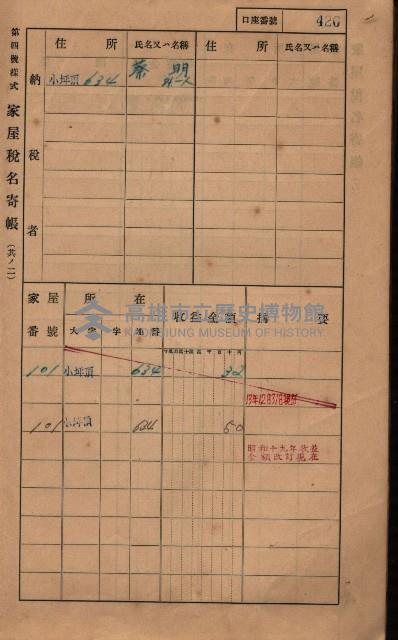 口座番號 426
第四號樣式 家屋稅名寄帳 (共ノ二)
住所 氏名又ハ名稱 住所 氏名又ハ名稱
納稅者
小坪頂 634 蔡 明 外一人
家屋番號 所在 大字 字 地番 收益金額 摘要
101 小坪頂 634 32
101 小坪頂 634 50
昭和十九年收益
金額改訂現在
高雄市立歷史博物館
KAOHSIUNG MUSEUM OF HISTORY